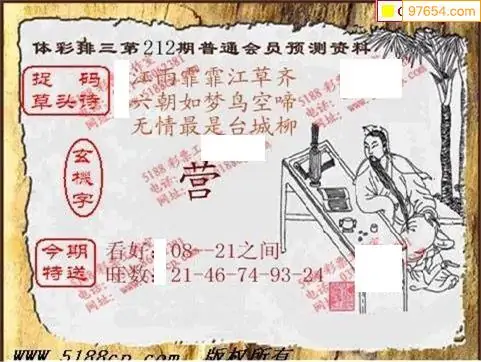 97654.com
体彩排三第212期普通会员预测资料
捉 码
草头诗
江雨霏霏江草齐
六朝如梦鸟空啼
无情最是台城柳
玄機字
营
今期
特送
看好: 08--21之间
旺数: 21-46-74-93-24
www.5188cp.com 版权所有